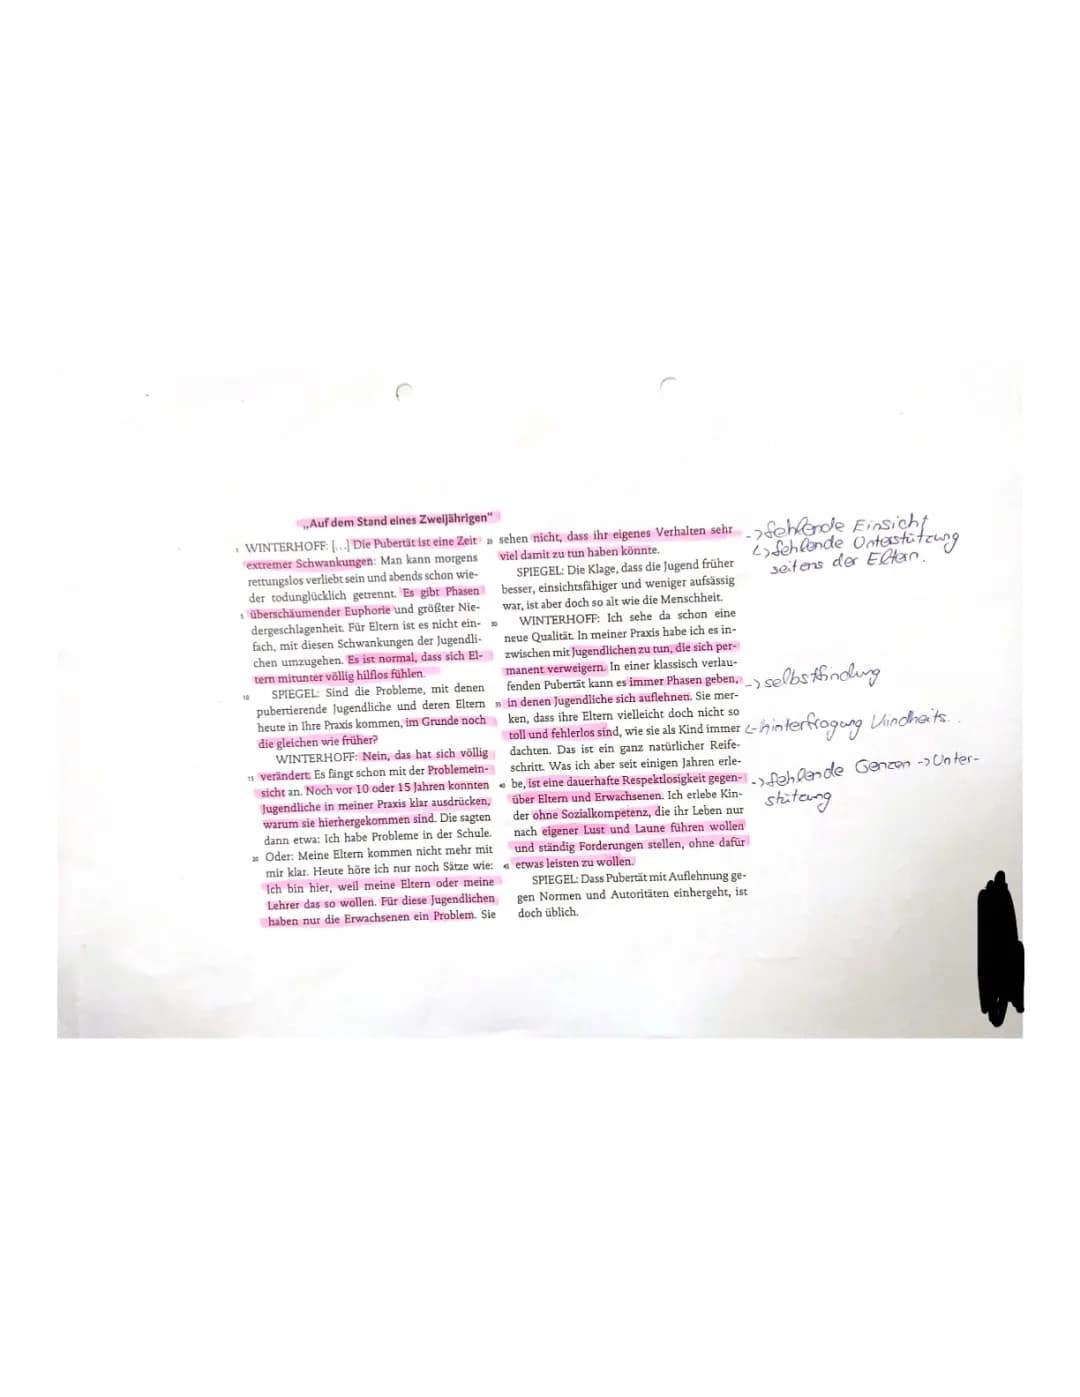 „Auf dem Stand eines Zweijährigen"
WINTERHOFF: [...] Die Pubertät ist eine Zeit
extremer Schwankungen: Man kann morgens
rettungslos verliebt sein und abends schon wie-
der todunglücklich getrennt. Es gibt Phasen
5 überschäumender Euphorie und größter Nie-
dergeschlagenheit. Für Eltern ist es nicht ein-
fach, mit diesen Schwankungen der Jugendli-
chen umzugehen. Es ist normal, dass sich El-
tern mitunter völlig hilflos fühlen.
10 SPIEGEL: Sind die Probleme, mit denen
pubertierende Jugendliche und deren Eltern
heute in Ihre Praxis kommen, im Grunde noch
die gleichen wie früher?
WINTERHOFF: Nein, das hat sich völlig
15 verändert. Es fängt schon mit der Problemein-
sicht an. Noch vor 10 oder 15 Jahren konnten
Jugendliche in meiner Praxis klar ausdrücken,
warum sie hierhergekommen sind. Die sagten
dann etwa: Ich habe Probleme in der Schule.
20 Oder: Meine Eltern kommen nicht mehr mit
mir klar. Heute höre ich nur noch Sätze wie:
Ich bin hier, weil meine Eltern oder meine
Lehrer das so wollen. Für diese Jugendlichen
haben nur die Erwachsenen ein Problem. Sie
25 sehen nicht, dass ihr eigenes Verhalten sehr
viel damit zu tun haben könnte.
SPIEGEL: Die Klage, dass die Jugend früher
besser, einsichtsfähiger und weniger aufsässig
war, ist aber doch so alt wie die Menschheit.
30 WINTERHOFF: Ich sehe da schon eine
neue Qualität. In meiner Praxis habe ich es in-
zwischen mit Jugendlichen zu tun, die sich per-
manent verweigern. In einer klassisch verlau-
fenden Pubertät kann es immer Phasen geben,
35 in denen Jugendliche sich auflehnen. Sie mer-
ken, dass ihre Eltern vielleicht doch nicht so
toll und fehlerlos sind, wie sie als Kind immer
dachten. Das ist ein ganz natürlicher Reife-
schritt. Was ich aber seit einigen Jahren erle-
40 be, ist eine dauerhafte Respektlosigkeit gegen-
über Eltern und Erwachsenen. Ich erlebe Kin-
der ohne Sozialkompetenz, die ihr Leben nur
nach eigener Lust und Laune führen wollen
und ständig Forderungen stellen, ohne dafür
45 etwas leisten zu wollen.
SPIEGEL: Dass Pubertät mit Auflehnung ge-
gen Normen und Autoritäten einhergeht, ist
doch üblich.
-> fehlende Einsicht
↳ fehlende Unterstützung
seitens der Eltern.
-> selbstfindung
<- hinterfragung Kindheits..
-> fehlende Genzen -> Unter-
stützung